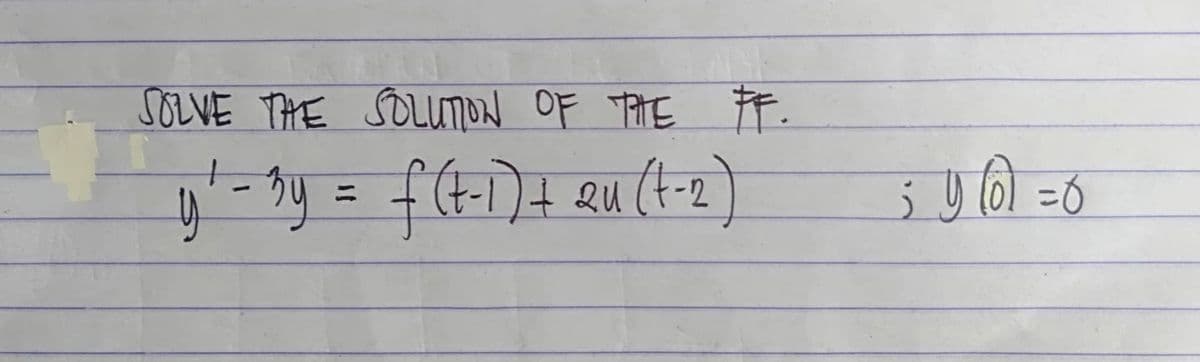 SOLVE THE SOLUTION OF THE FF.
y' - 3y = f(t-1) + 2u(t-2) ; y(0) = 0